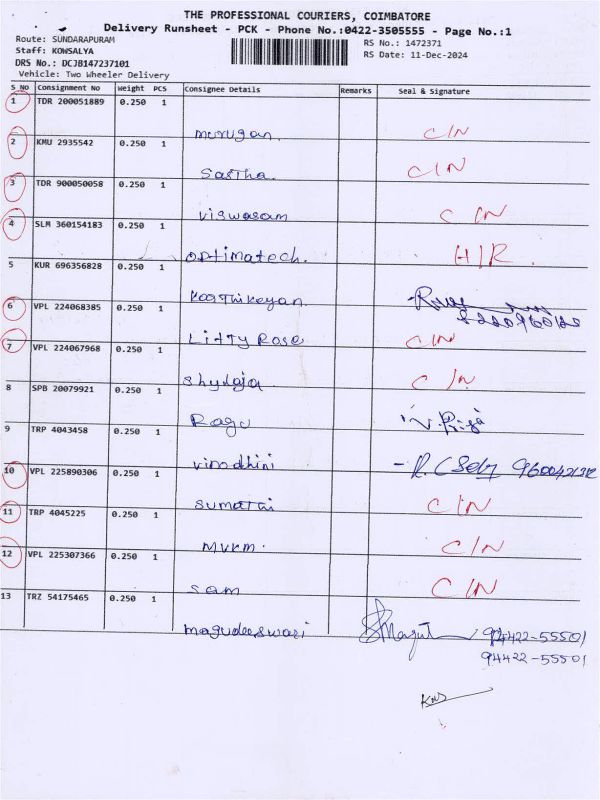 THE PROFESSIONAL COURIERS, COIMBATORE
Delivery Runsheet - PCK - Phone No.:0422-3505555 - Page No.:1
Route: SUNDARAPURAM
RS No.: 1472371
Staff: KOWSALYA
RS Date: 11-Dec-2024
DRS No.: DCJB147237101
Vehicle: Two Wheeler Delivery
S No Consignment No Weight PCS Consignee Details Remarks Seal & Signature
1 TDR 200051889 0.250 1
murugan C/N
2 KMU 2935542 0.250 1
Sastha C/N
3 TDR 900050058 0.250 1
viswasam C/N
4 SLM 360154183 0.250 1
optimatech. H/R.
5 KUR 696356828 0.250 1
Karthikeyan
6 VPL 224068385 0.250 1
Litty Rose C/N
7 VPL 224067968 0.250 1
Shylaja C/N
8 SPB 20079921 0.250 1
Ragu V. Priya
9 TRP 4043458 0.250 1
vinodhini
10 VPL 225890306 0.250 1
sumathi C/N
11 TRP 4045225 0.250 1
MVRM. C/N
12 VPL 225307366 0.250 1
Sam C/N
13 TRZ 54175465 0.250 1
magudeeswari 94422-55501
94422-55501